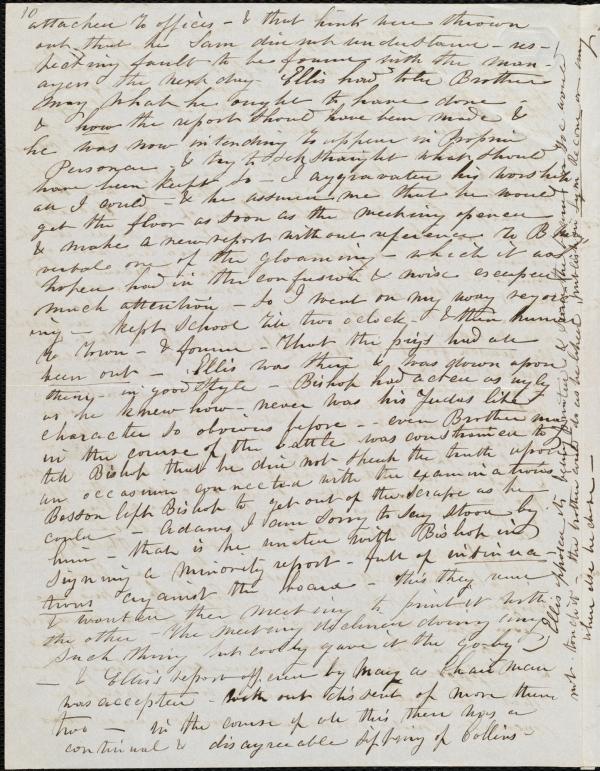 10
attached to offices – & that hints were thrown
out that he Sam did not understand – res-
pecting fault to be found with the man-
agers the next day Ellis had told Brother
May what he ought to have done
& how the report should have been made &
he was now intending to appear in propria
Personae & try to set straight what should
have been kept so – I aggravated his worship
all I could – & he assured me that he would
get the floor as soon as the meeting opened
& make a new report without reference to B the
verbal one of the gloaming – which it was
hoped had in the confusion & noise escaped
much attention – So I went on my way rejoic-
ing – kept School till two o'clock – & then
to Town – & found – That the pigs had all
been out – Ellis was there & was down upon
them – in good Style – Bishop had acted as ugly
as he knew how – never was his Judas like
character so obvious before – even Brother May
in the course of the battle was constrained to
tell Bishop that he did not speak the truth upon
an occasion connected with the examinations
Bosson left Bishop to get out of the scrape as he
could – Adams I am sorry to say stood by
him – that is he united with Bishop in
signing a minority report – full of insinua
tions against the board – this they read
& wanted the meeting to print it with
the other – The meeting declined doing any
such thing but coolly gave it the go by
– & Ellis's report offered by May as Chairman
was accepted with out dissent of more than
two – in the course of all this there was a
continual & disagreeable sifting of Collins
Ellis opposed its being printed & said the Society's Gee would
not touch it – the brother and do as he liked publish on own account
where else he chose –